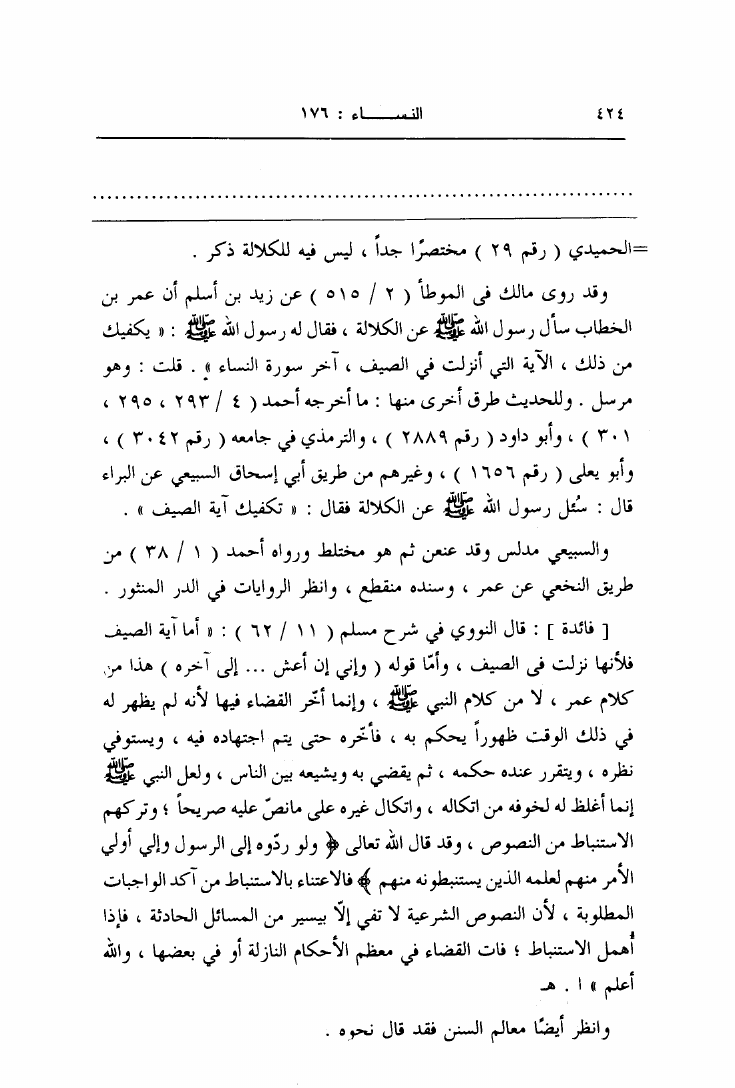 ٤٢٤ النساء : ١٧٦
=الحميدي ( رقم ٢٩ ) مختصرًا جداً ، ليس فيه للكلالة ذكر .
وقد روى مالك فى الموطأ ( ٢ / ٥١٥ ) عن زيد بن أسلم أن عمر بن
الخطاب سأل رسول الله ﷺ عن الكلالة ، فقال له رسول الله ﷺ : « يكفيك
من ذلك ، الآية التي أنزلت في الصيف ، آخر سورة النساء » . قلت : وهو
مرسل . وللحديث طرق أخرى منها : ما أخرجه أحمد ( ٤ / ٢٩٣ ، ٢٩٥ ،
٣٠١ ) ، وأبو داود ( رقم ٢٨٨٩ ) ، والترمذي في جامعه ( رقم ٣٠٤٢ ) ،
وأبو يعلى ( رقم ١٦٥٦ ) ، وغيرهم من طريق أبي إسحاق السبيعي عن البراء
قال : سُئل رسول الله ﷺ عن الكلالة فقال : « تكفيك آية الصيف » .
والسبيعي مدلس وقد عنعن ثم هو مختلط ورواه أحمد ( ١ / ٣٨ ) من
طريق النخعي عن عمر ، وسنده منقطع ، وانظر الروايات في الدر المنثور .
[ فائدة ] : قال النووي في شرح مسلم ( ١١ / ٦٢ ) : « أما آية الصيف
فلأنها نزلت فى الصيف ، وأمّا قوله ( وإني إن أعش ... إلى آخره ) هذا من
كلام عمر ، لا من كلام النبي ﷺ ، وإنما أخّر القضاء فيها لأنه لم يظهر له
في ذلك الوقت ظهوراً يحكم به ، فأخّره حتى يتم اجتهاده فيه ، ويستوفي
نظره ، ويتقرر عنده حكمه ، ثم يقضي به ويشيعه بين الناس ، ولعل النبي ﷺ
إنما أغلظ له لخوفه من اتكاله ، واتكال غيره على مانصّ عليه صريحاً ؛ وتركهم
الاستنباط من النصوص ، وقد قال الله تعالى ﴿ ولو ردّوه إلى الرسول وإلي أولي
الأمر منهم لعلمه الذين يستنبطونه منهم ﴾ فالاعتناء بالاستنباط من آكد الواجبات
المطلوبة ، لأن النصوص الشرعية لا تفي إلّا بيسير من المسائل الحادثة ، فإذا
أُهمل الاستنباط ؛ فات القضاء في معظم الأحكام النازلة أو في بعضها ، والله
أعلم » ا . هـ
وانظر أيضًا معالم السنن فقد قال نحوه .